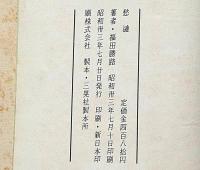 愁漣
定価金四百八拾円
著者・福田勝路 昭和卅三年七月十日印刷
昭和卅三年七月廿日発行 印刷・新日本印
刷株式会社 製本・三晃社製本所